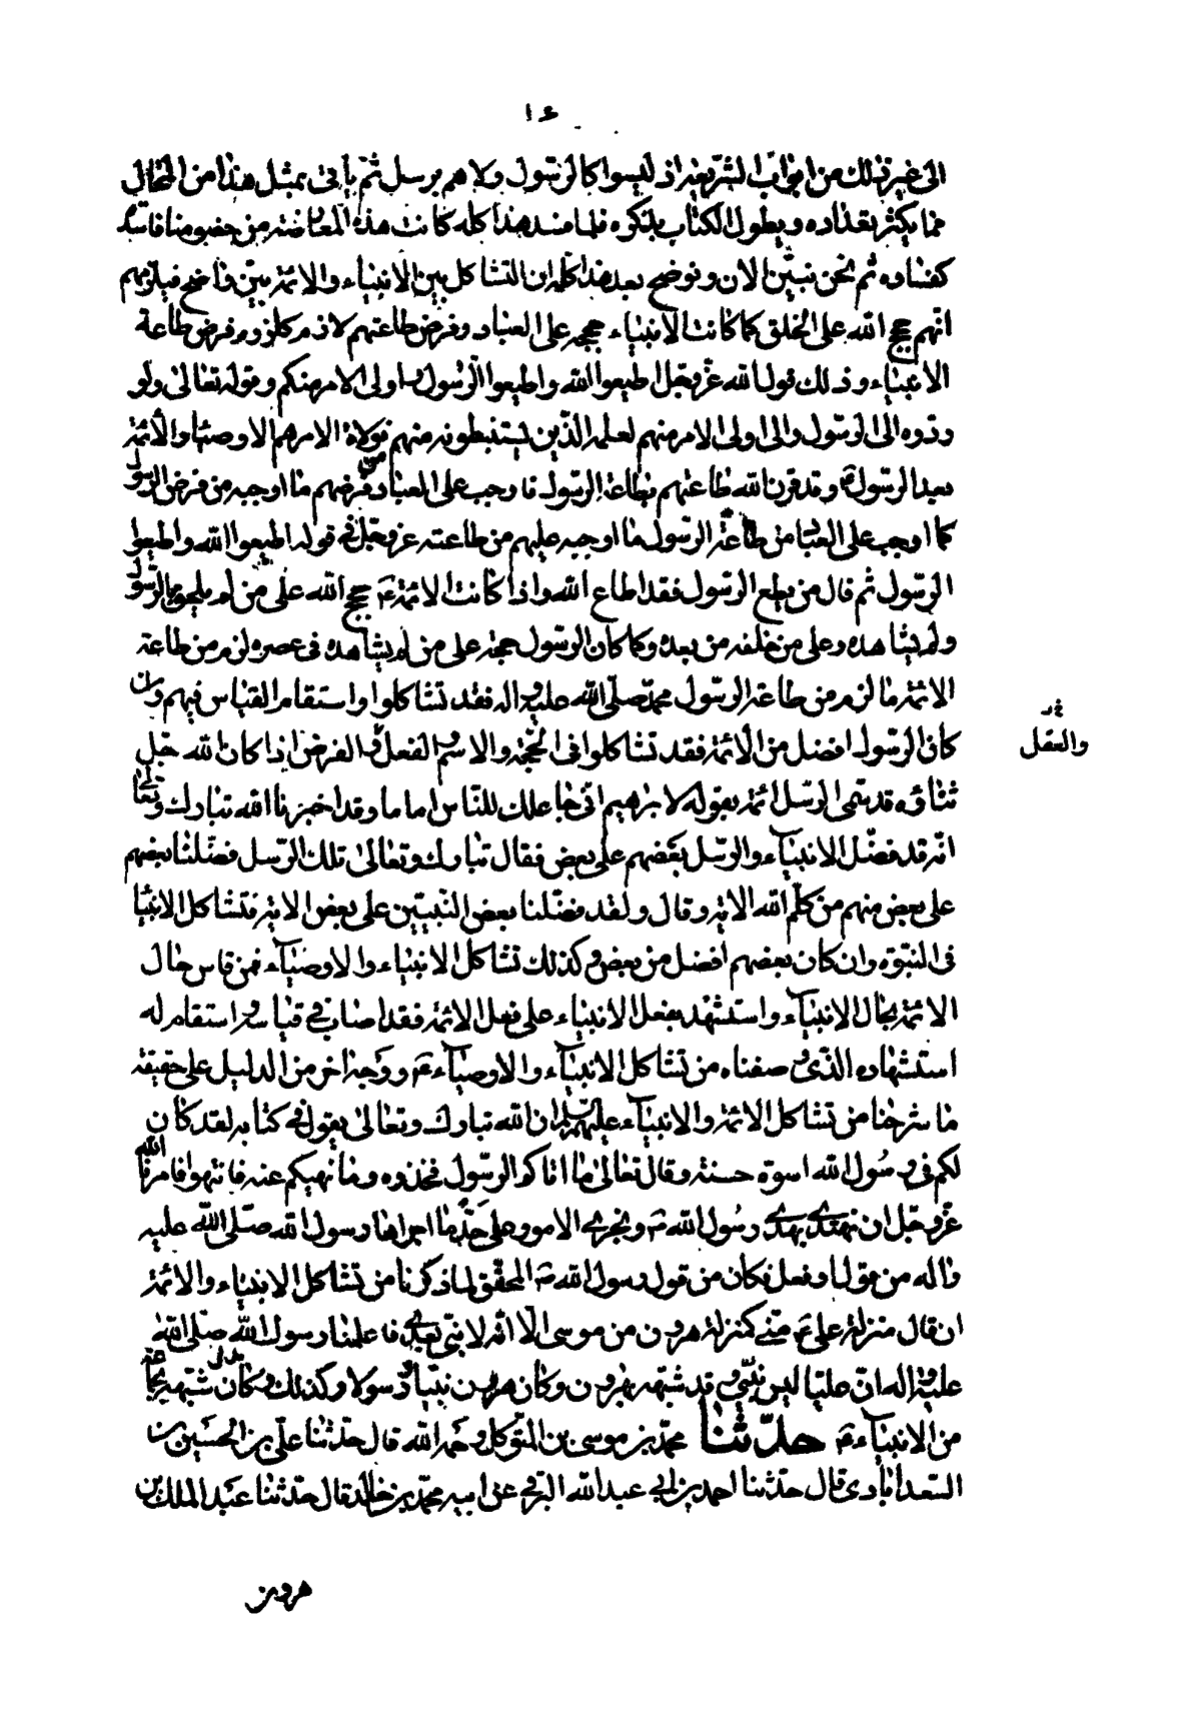 ١٤
الى غير ذلك من ابواب الشريعة اذ ليسوا كالرسول ولا هم برسل ثم يأتى بمثل هذا من المحال
مما يكثر تعداده ويطول الكتاب بذكره فلما فسد هذا كله كانت هذه المعارضة من خصومنا فاسدة
كفساده ثم نحن نبيّن الان ونوضح بعد هذا كله ان التشاكل بين الانبياء والائمة بيّن واضح فيلزمهم
انّهم حجج الله على الخلق كما كانت الانبياء حججه على العباد وفرض طاعتهم لازم كلزوم فرض طاعة
الانبياء وذلك قول الله عزّ وجل اطيعوا الله واطيعوا الرّسول واولى الامر منكم وقوله تعالى ولو
ردّوه الى الرّسول والى اولى الامر منهم لعلمه الذّين يستنبطونه منهم فولاة الامر هم الاوصياء والأئمة
بعد الرسول ص وقد قرن الله طاعتهم بطاعة الرسول فاوجب على العباد من فرضهم ما اوجبه من فرض الرّسول
كما اوجب على العباد من طاعة الرّسول ما اوجبه عليهم من طاعته عز وجلّ فى قوله اطيعوا الله واطيعوا
الرّسول ثم قال من يطع الرّسول فقد اطاع الله واذا كانت الائمة ع حجج الله على من لم يلحق بالرّسول
ولم يشاهده وعلى من خلفه من بعده وكما كان الرسول حجة على من لم يشاهده فى عصره لزم من طاعة
الائمة ما لزم من طاعة الرسول محمد صلّى الله عليه واله فقد تشاكلوا واستقام القياس فيهم وان
كان الرسول افضل من الائمة فقد تشاكلوا فى الحجّة والاسم والفعل والفرض اذا كان الله جل
خد
والعقل
ثناؤه قد سمّى الرسل ائمة بقوله لابراهيم انى جاعلك للنّاس اماما وقد اخبرنا الله تبارك وتعالى
انّه قد فضّل الانبياء والرّسل بعضهم على بعض فقال تبارك وتعالى تلك الرّسل فضّلنا بعضهم
على بعض منهم من كلّم الله الاية وقال ولقد فضّلنا بعض النّبيّين على بعض الاية فتشاكل الانبياء
فى النبوّة وان كان بعضهم افضل من بعض وكذلك تشاكل الانبياء والاوصياء فمن قاس حال
الائمة بحال الانبياء واستشهد بفعل الانبياء على فعل الائمة فقد اصاب فى قياسه واستقام له
استشهاده بالذى وصفناه من تشاكل الانبياء والاوصياء ع ووجه اخر من الدليل على حقيقة
ما شرحنا من تشاكل الائمة والانبياء عليهم السلم ان الله تبارك وتعالى يقول فى كتابه لقد كان
لكم فى رسول الله اسوة حسنة وقال تعالى ما اتاكم الرّسول فخذوه وما نهيكم عنه فانتهوا فامرنا الله
عزّ وجل ان نهتدى بهدى رسول الله ص ونجرى الامور على حدّ ما اجراها رسول الله صلّى الله عليه
واله من قول او فعل فكان من قول رسول الله ص المحقّق لما ذكرنا من تشاكل الانبياء والائمّة
ان قال منزلة على ع منّى كمنزلة هرون من موسى الّا انّه لا نبىّ بعدى فاعلمنا رسول الله صلّى الله
عليه واله ان عليّا ليس بنبىّ وقد شبّهه بهرون وكان هرون نبيّا ورسولا وكذلك شبّهه بجماعة
من الانبياء ع حدّثنا محمد بن موسى بن المتوكل رحمه الله قال حدّثنا علىّ بن الحسين
السّعدآبادى قال حدّثنا احمد بن ابى عبد الله البرقى عن ابيه محمّد بن خالد قال حدّثنا عبد الملك بن
هرون